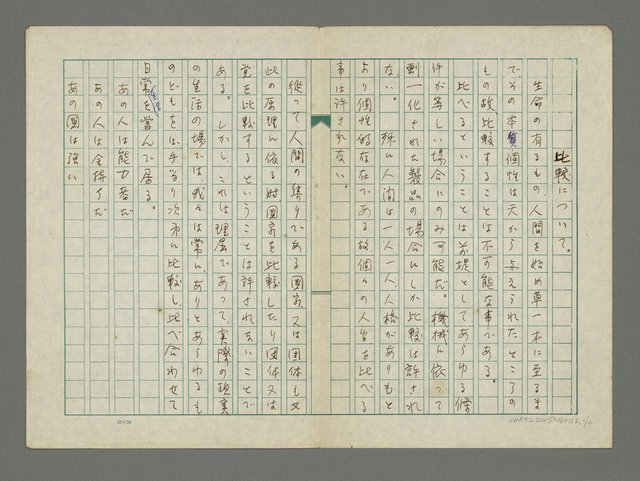 比較について。
生命の有るもの人間を始め草一本に至るま
でその本質個性は天から与えられたところの
もの故比較することは不可能な事である。
比べるということは前提としてあらゆる條
件が等しい場合にのみ可能だ。機械に依って
劃一化された製品の場合にしか比較は許され
ない。殊に人間は一人一人人格がありもと
より個性的な存在である故個々の人皆を比べる
事は許されない。
從って人間の集りである國家又は団体も又
此の原理に依る時国家を比較したり団体又は
党を比較するということは許されないことで
ある。しかし、これは理屈であって、実際の現実
の生活の場では、我々は常に、ありとあらゆるも
のどもを、手当り次第に比較し比べ合わせて
日常生活を営んで居る。
あの人は能力者だ
あの人は金持ちだ
あの國は強い
NMTL20050060112, 1/2